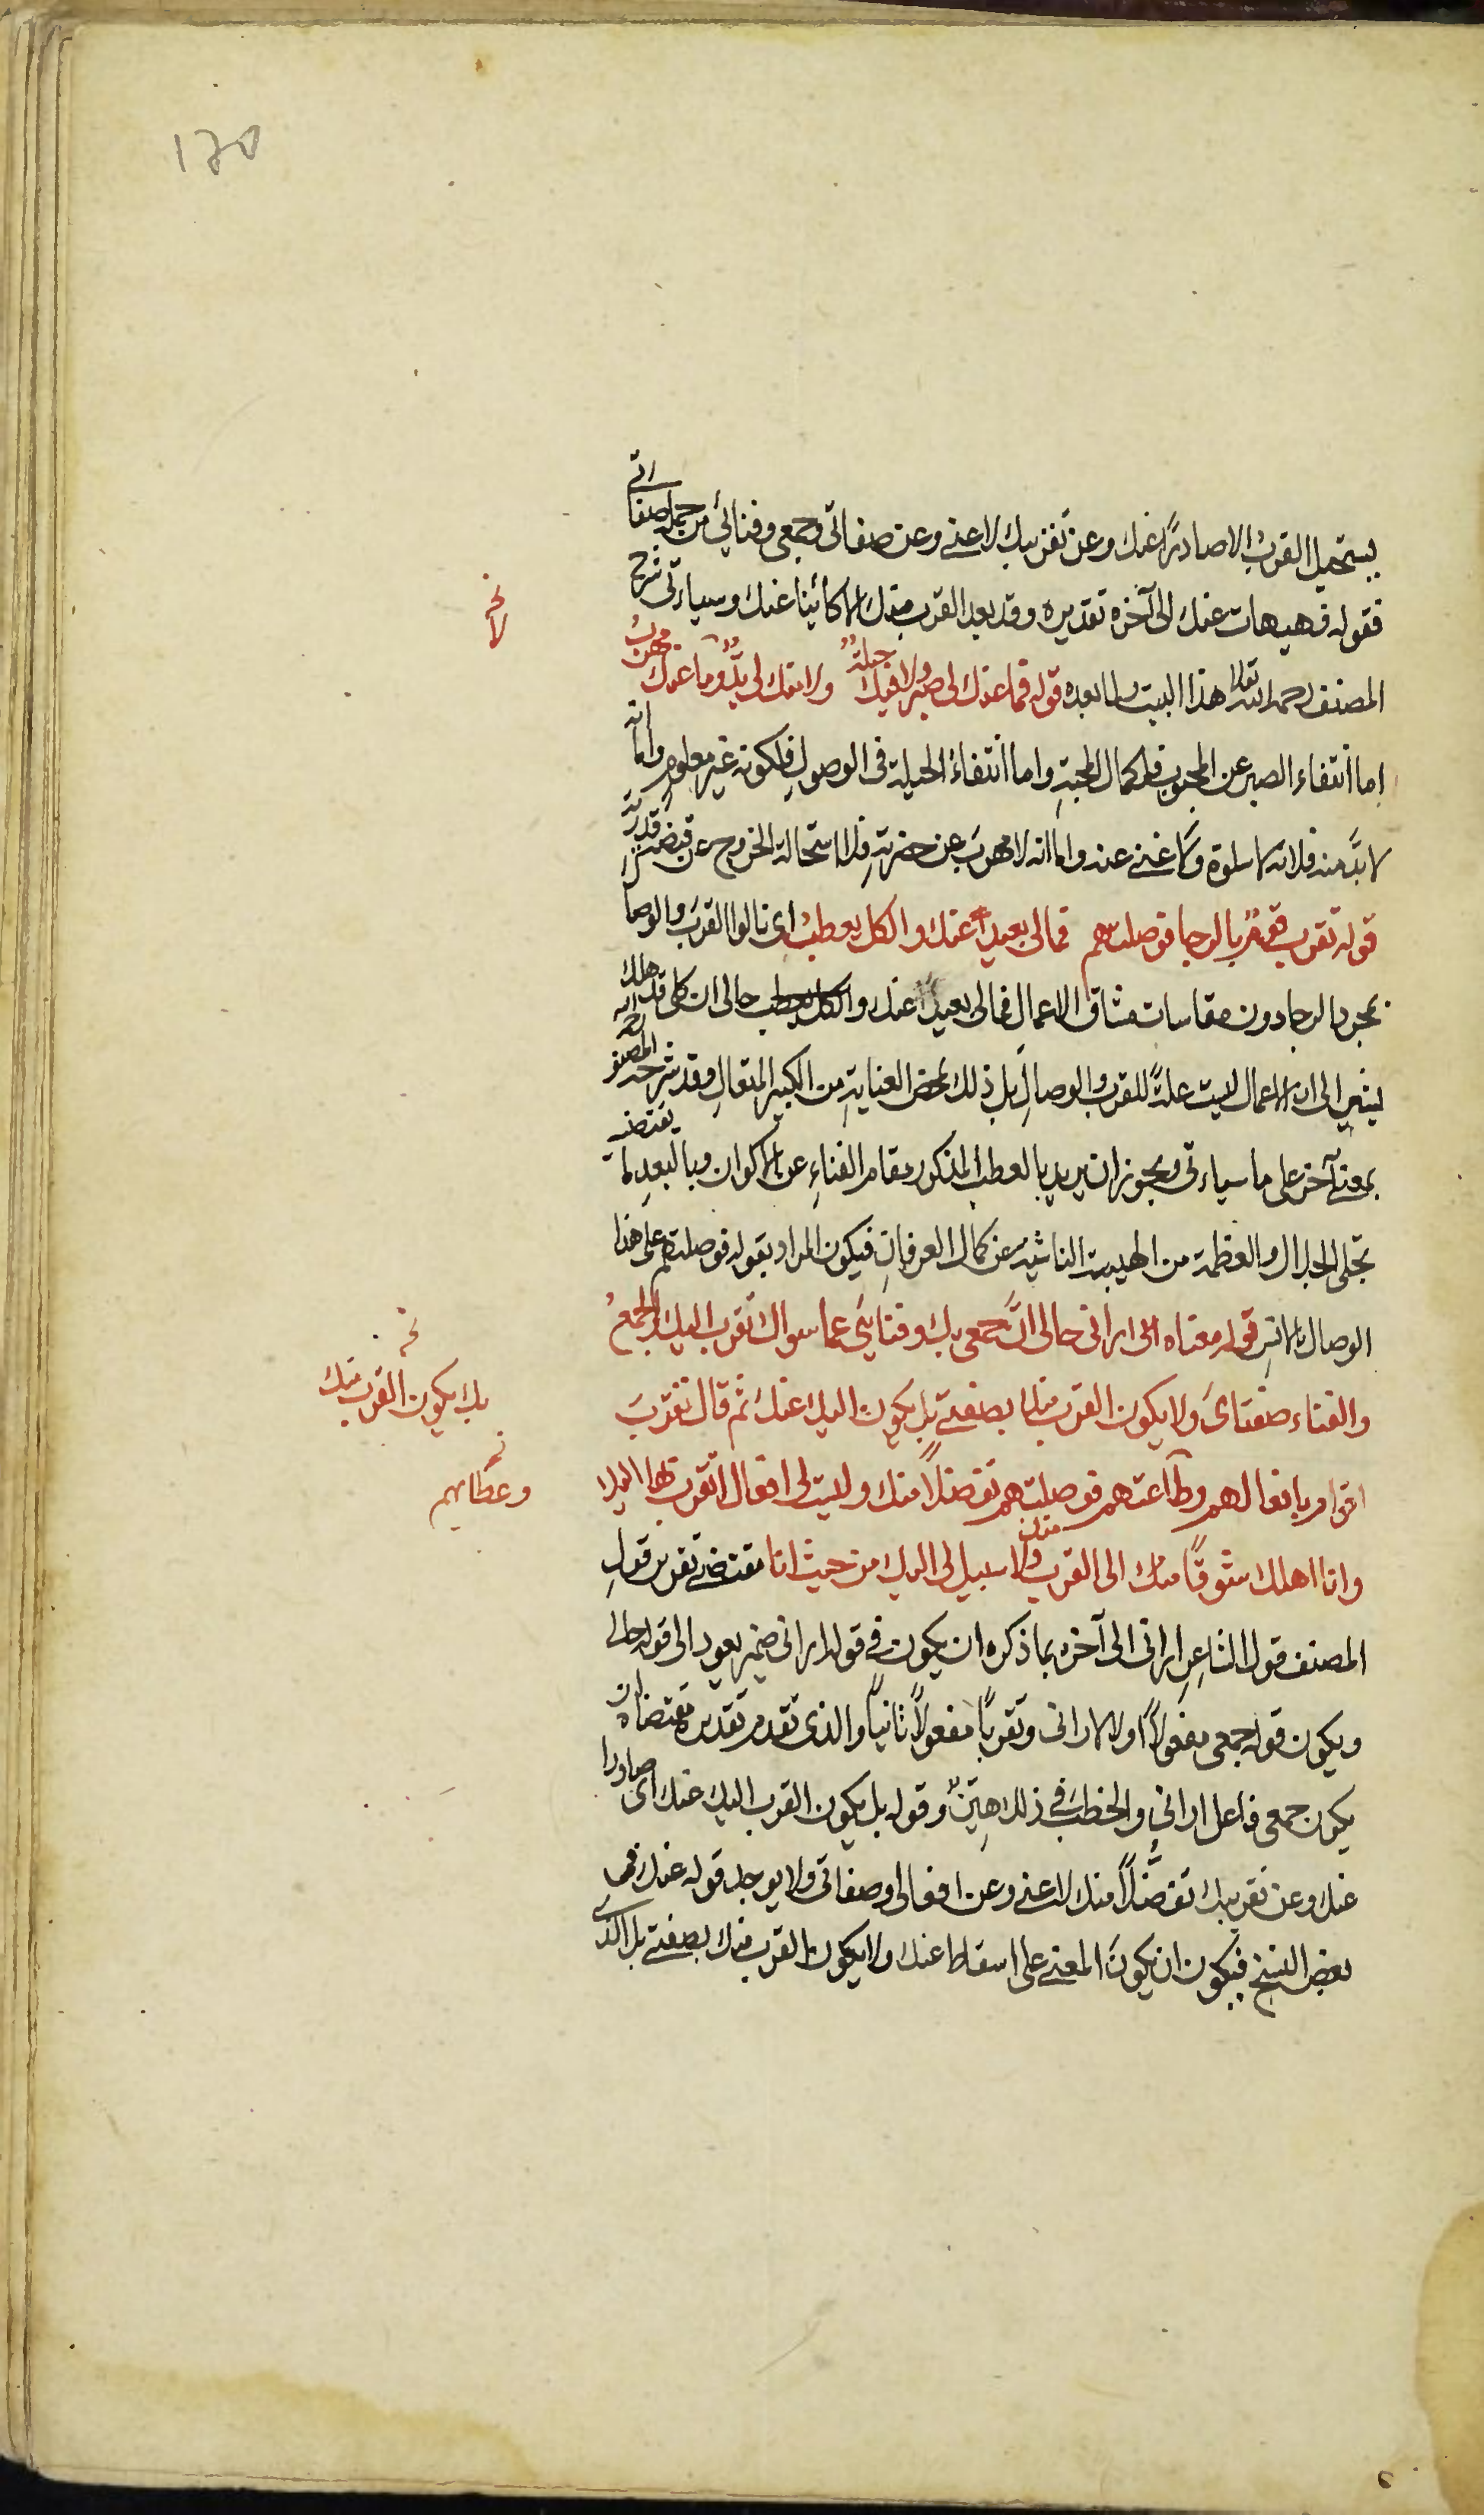 ١٢٥
يستحيل القرب الا صادرًا عنك وعن تقريبك لا عني وعن صفاتي وجمعي وفنائي من جملة صفاتي
فقوله فهيهات عنك الى آخره تقديره وقد بعد القرب منك الا كائنا عنك وسياءتي شرح
المصنف رحمه الله تعالى هذا البيت ولما بعده قوله فما عنك لى صبر ولا فيك حيلة ولا منك لى بدّ وما عنك مهرب
اما انتفاء الصبر عن المحبوب فلكمال المحبة واما انتفاء الحيلة فى الوصول فلكونه غير معلوم واما انه
لا بدّ منه فلانه لا سلوة ولا غنى عنه واما انه لا مهرب عن حضرته فلاستحالة الخروج عن قبضة قدرته
قوله تقرب قوم بالرجا فوصلتهم فمالى بعيدا عنك والكل يعطب اى نالوا القرب والوصال
بمجرد الرجا دون مقاسات مشاق الاعمال فمالى بعيدا عنك والكل يعطب حالى ان كلى قد هلك
يشير الى ان الاعمال ليست علة للقرب والوصال بل ذلك بمحض العناية من الكبير المتعال وقد شرحه المصنف رحمه الله
بمعنى آخر على ما سياءتى ويجوز ان يريد بالعطب المذكور مقام الفناء عن الاكوان وبالبعد ما يقتضيه
تجلى الجلال والعظمة من الهيبة الناشية عن كمال العرفان فيكون المراد بقوله فوصلتهم على هذا
الوصال بالانس قوله معناه الى ارانى حالى انّ جمعى بك وفنائي عما سواك تقرب اليك والجمع
والفناء صفتاى ولا يكون القرب منك بصفتى بل يكون اليك عنك ثم قال تقرب
اقوام بافعالهم وطاعتهم فوصلتهم تفضلا منك وليست لى افعال اتقرب بها اليك
وانا اهلك شوقًا منك الى القرب منك ولا سبيل لى اليك من حيث انا مقتضى تقرير قول
المصنف قول الشاعر ارانى الى آخره بما ذكره ان يكون فى قوله ارانى ضمير يعود الى قوله حالى
ويكون قوله جمعى مفعولا اولا لارانى وتقربًا مفعولًا ثانيًا والذى تقدم تقديره مقتضاه ان
يكون جمعى فاعل ارانى والخطب فى ذلك هيّن وقوله بل يكون القرب اليك عنك اى صادرا
عنك وعن تقريبك تفضّلًا منك لا عنى وعن افعالى وصفاتى ولا يوجد قوله عنك فى
بعض النسخ فيكون ان يكون المعنى على اسقاط عنك ولا يكون القرب منك بصفتى بل الذى
نخـ
لا
نخـ
بك يكون القرب منك
نخـ
وعطايهم